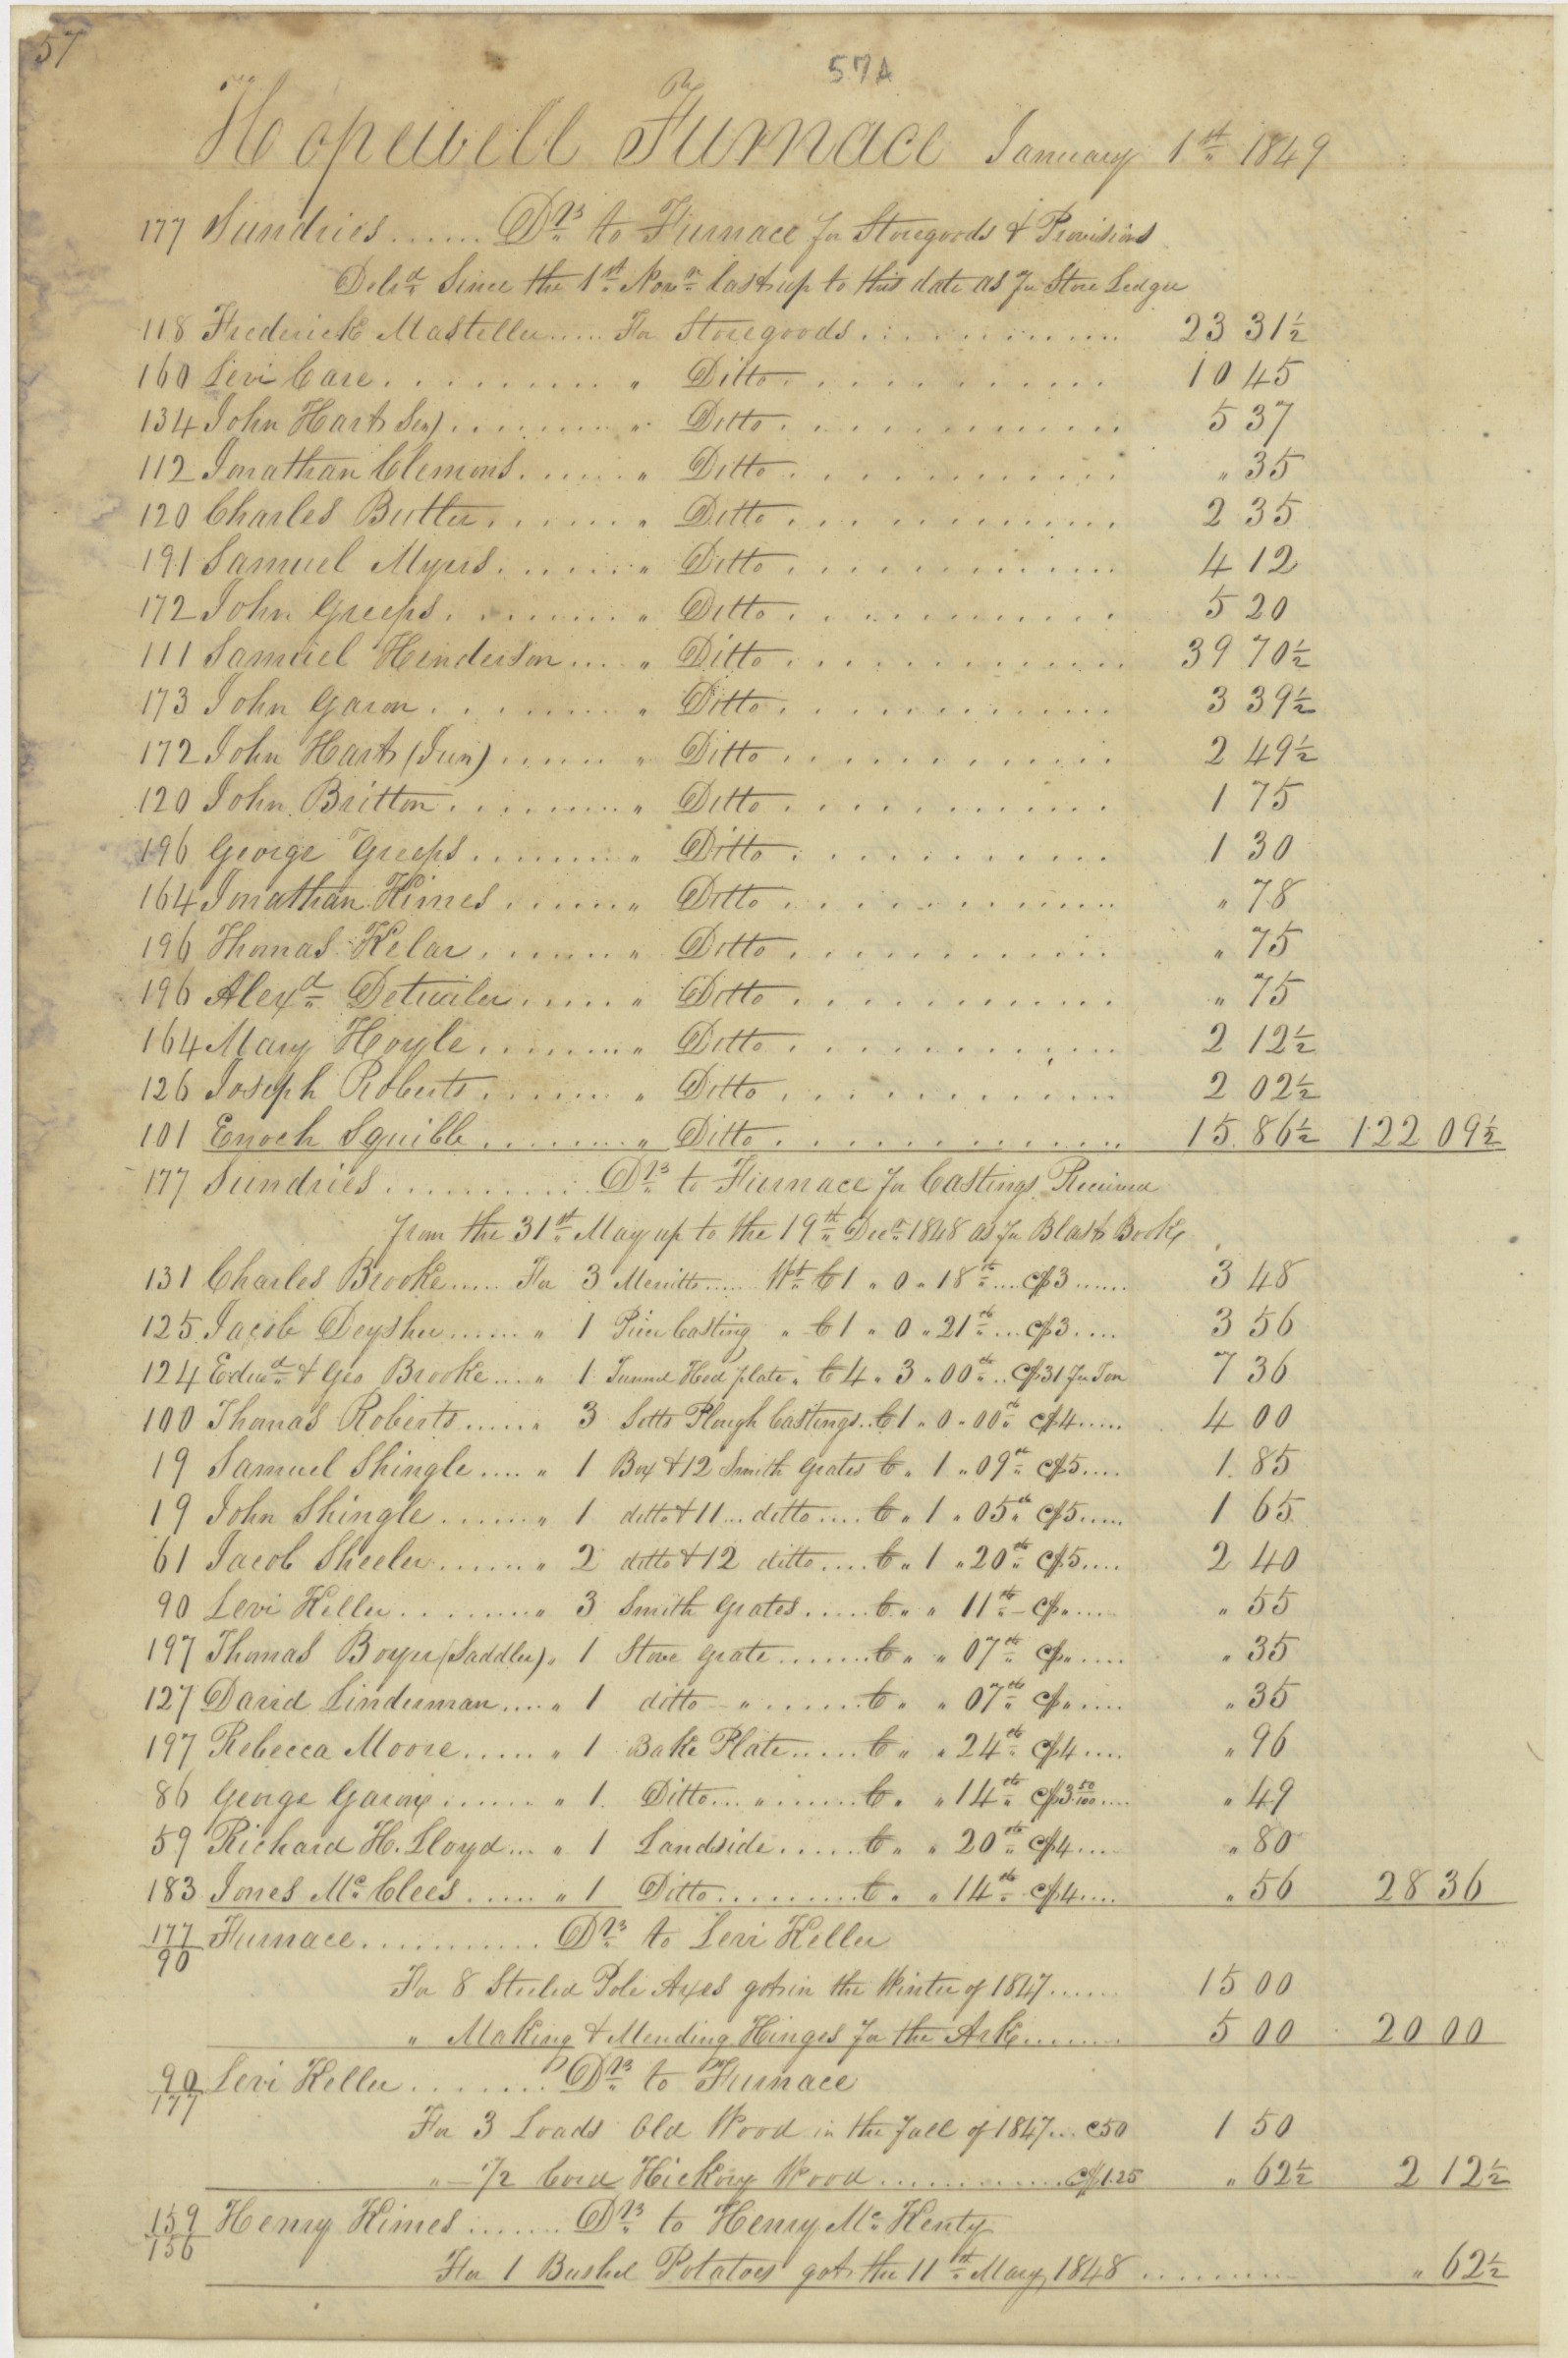 57
57A
Hopewell Furnace January 1st 1849
177 Sundries ...... Drs to Furnace for Storegoods & Provisions
Deld Since the 1st Novr last up to this date as pr Store Ledger
118 Frederick Mosteller ..... For Storegoods ............ 23 31½
160 Levi Care ............ " Ditto ............ 10 45
134 John Hart Sen) ......... " Ditto ............ 5 37
112 Jonathan Clemons ...... " Ditto ............ " 35
120 Charles Butler ....... " Ditto ............ 2 35
191 Samuel Myers ....... " Ditto ............ 4 12
172 John Greeps ......... " Ditto ............ 5 20
111 Samuel Henderson .... " Ditto ............ 39 70½
173 John Garon ......... " Ditto ............ 3 39½
172 John Hart (Jun) ...... " Ditto ............ 2 49½
120 John Britton ......... " Ditto ............ 1 75
196 George Greeps ........ " Ditto ............ 1 30
164 Jonathan Himes ...... " Ditto ............ " 78
196 Thomas Kelar ....... " Ditto ............ " 75
196 Alexd Detwiler ...... " Ditto ............ " 75
164 Mary Hoyle ......... " Ditto ............ 2 12½
126 Joseph Roberts ....... " Ditto ............ 2 02½
101 Enoch Squibb ......... " Ditto ............ 15 86½ 122 09½
177 Sundries ............ Drs to Furnace for Castings Received
from the 31st May up to the 19th Decr 1848 as pr Blast Book
131 Charles Brooke ..... For 3 Merritts ..... Wt C1 " 0 " 18 lb ... c$3 ...... 3 48
125 Jacob Deysher ...... " 1 Piece Casting " C1 " 0 " 21 lb ... c$3 .... 3 56
124 Edwd & Geo Brooke ... " 1 Tunnel Head plate " C4 " 3 " 00 lb .. c$31 pr Ton 7 36
100 Thomas Roberts ...... " 3 Setts Plough Castings .. C1 " 0 " 00 lb c$4 ..... 4 00
19 Samuel Shingle .... " 1 Box & 12 Smith Grates C " 1 " 09 lb c$5 .... 1 85
19 John Shingle ....... " 1 ditto & 11 ... ditto .... C " 1 " 05 lb c$5 ..... 1 65
61 Jacob Sheeler ....... " 2 ditto & 12 ditto .... C " 1 " 20 lb c$5 .... 2 40
90 Levi Keller ......... " 3 Smith Grates ..... C " " 11 lb c$ " .... " 55
197 Thomas Boyer (Saddler) " 1 Stove Grate ....... C " " 07 lb c$ " .... " 35
127 David Linderman .... " 1 ditto " ...... C " " 07 lb c$ " .... " 35
197 Rebecca Moore ...... " 1 Bake Plate ..... C " " 24 lb c$4 .... " 96
86 George Garon ...... " 1 Ditto ... " ...... C " " 14 lb c$3 50/100 .... " 49
59 Richard H. Lloyd ... " 1 Landside ..... C " " 20 lb c$4 .... " 80
183 Jones Mc Clees ...... " 1 Ditto ......... C " " 14 lb c$4 .... " 56 28 36
177/90 Furnace ............ Drs to Levi Keller
For 8 Steeled Pole Axes got in the Winter of 1847 ...... 15 00
" Making & Mending Hinges for the Ark ....... 5 00 20 00
90/177 Levi Keller ........ Drs to Furnace
For 3 Loads Old Wood in the fall of 1847 ... c50 1 50
" — 1/2 Cord Hickory Wood ............ c$1.25 " 62½ 2 12½
159/156 Henry Himes ....... Drs to Henry Mc Kenty
For 1 Bushel Potatoes got the 11th May 1848 ......... " 62½